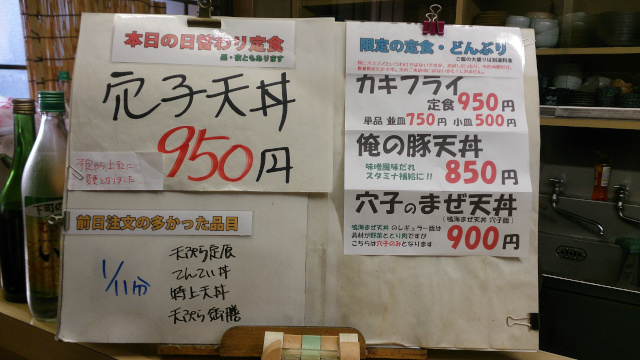 本日の日替わり定食
昼・夜ともあります
穴子天丼
950円
変更となりました
前日注文の多かった品目
1/11分
天ぷら定食
てんてい丼
特上天丼
天ぷら
限定の定食・どんぶり
ご飯の大盛りは別途料金
カキフライ
定食950円
単品 並皿750円 小皿500円
俺の豚天丼
味噌風味だれ
スタミナ補給に!!
850円
穴子のまぜ天丼
(鳴海まぜ天丼 穴子版)
鳴海まぜ天丼 のレギュラー版は
具材が野菜ととり肉ですが
こちらは穴子のみとなります
900円